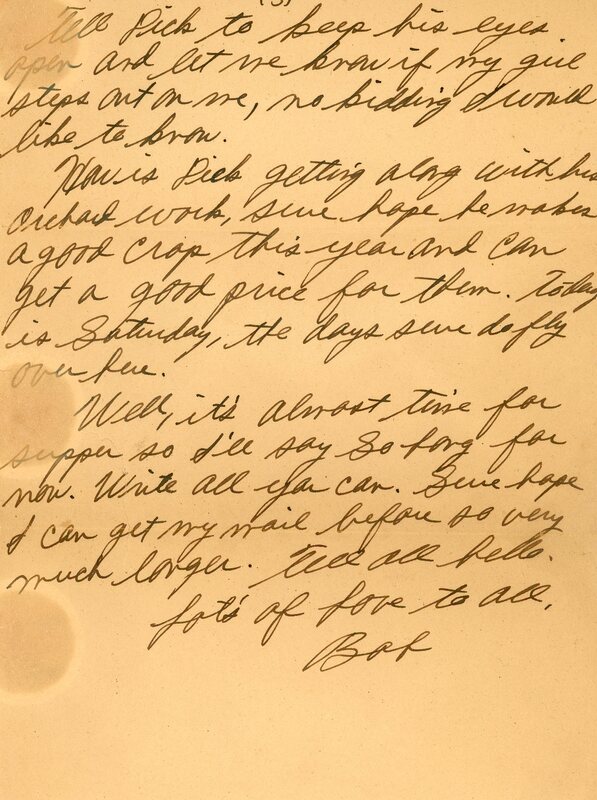 (3)
Tell Dick to keep his eyes
open and let me know if my girl
steps out on me, no kidding I would
like to know.
How is Dick getting along with his
orchard work, sure hope he makes
a good crop this year and can
get a good price for them. Today
is Saturday, the days sure do fly
over here.
Well, it's almost time for
supper so I'll say So long for
now. Write all you can. Sure hope
I can get my mail before so very
much longer. Tell all hello.
Lot's of Love to all,
Bob